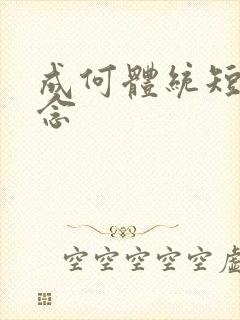 成何體統短
念
空空空空空虛